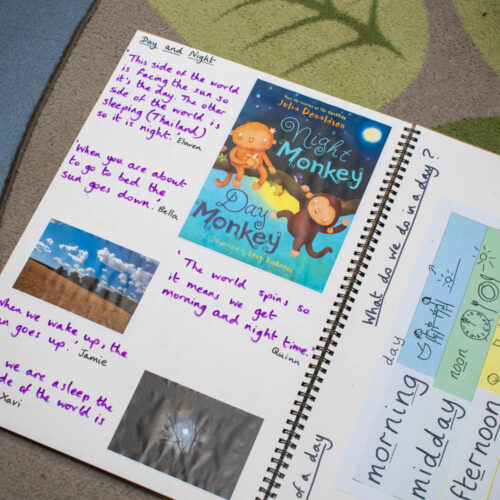 Day and Night
'This side of the world
is facing the sun so
it's the day. The other
side of the world is
sleeping (Thailand)
so it is night.' Elowen
'When you are about
to go to bed the
sun goes down.' Bella
Julia Donaldson
Night
Monkey
Day
Monkey
Illustrated by Lucy Richards
'The world spins so
it means we get
morning and night time.'
Quinn
when we wake up, the
goes up.' Jamie
we are asleep the
of the world is
Xavi
What do we do in a day?
of a day
day
noon
morning
midday
afternoon